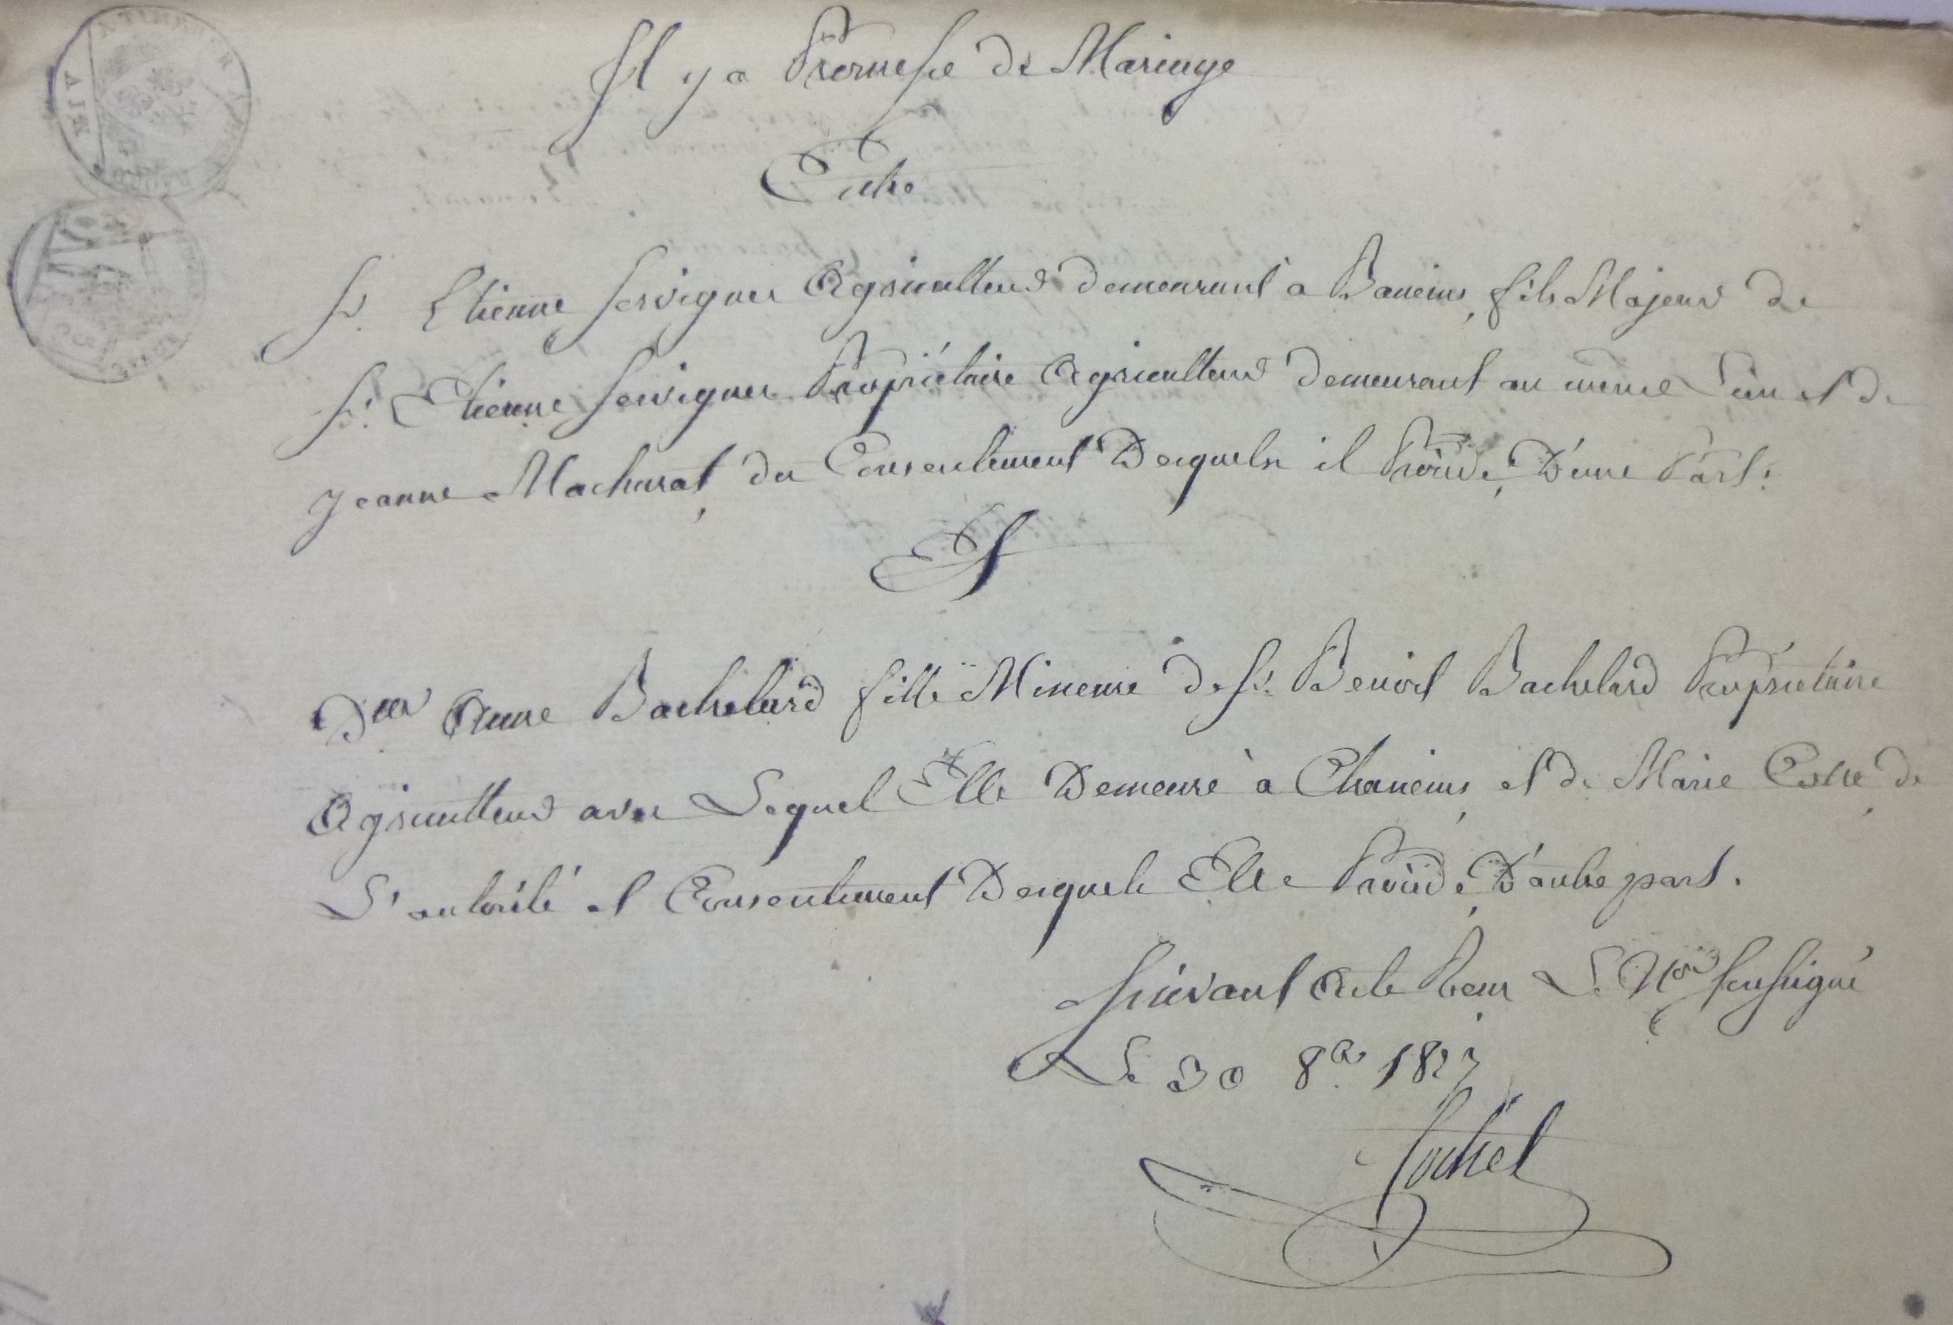 Il y a Promesse de Mariage
Entre
Sr. Etienne Servigner Agriculteur demeurant à Baneins, fils Majeur de
Sr. Etienne Servigner Propriétaire Agriculteur demeurant au même Lieu et de
Jeanne Machurat, du Consentement Desquels il Procède, D'une Part.
Et
Dlle Anne Bachelard fille Mineure de Sr. Benoit Bachelard Propriétaire
Agriculteur avec Lequel Elle Demeure à Chaneins, et de Marie de
L'autorité et Consentement Desquels Elle Procède, D'autre part.
Suivant Acte Reçu Le Nre Soussigné
Le 30 8bre